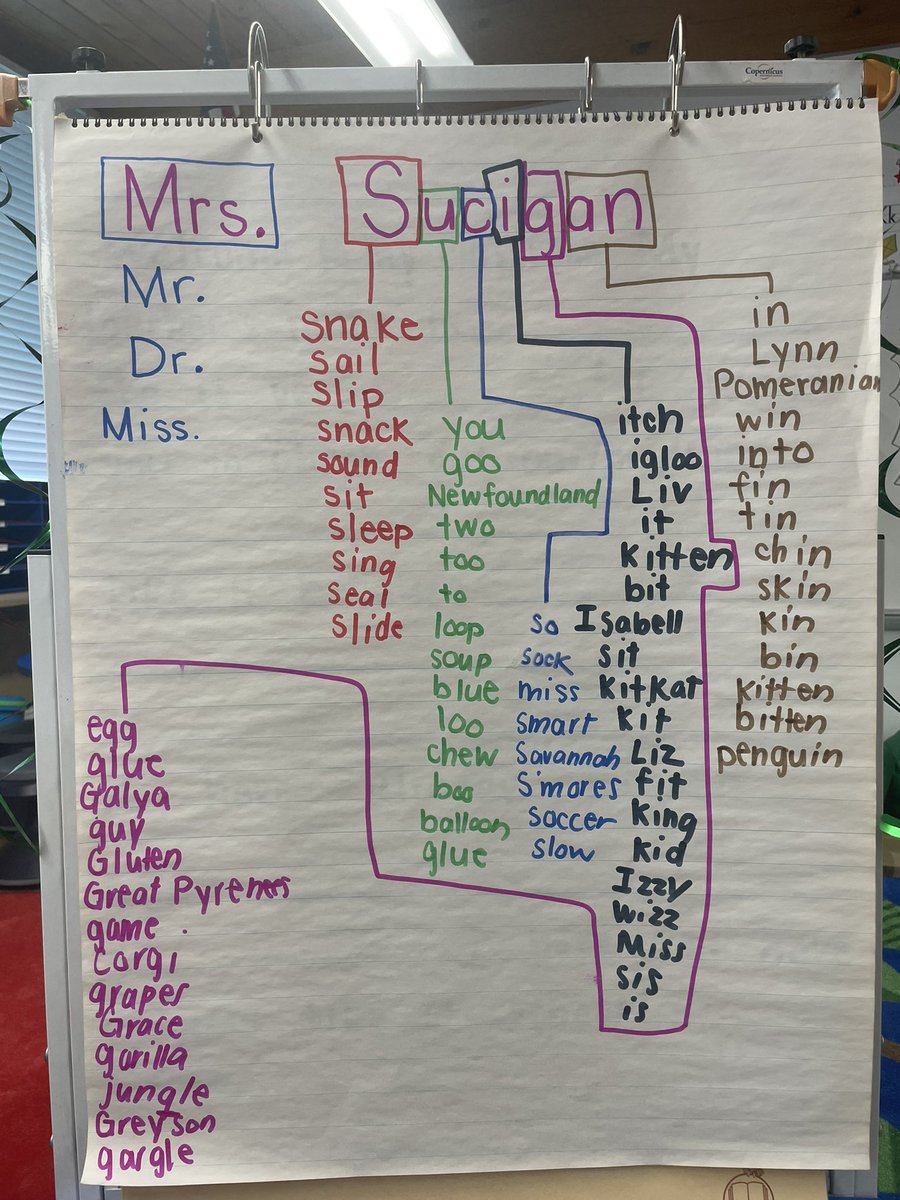 Copernicus
Mrs. Sucigan
Mr.
Dr.
Miss.
snake
sail
slip
snack
sound
sit
sleep
sing
seal
slide
you
goo
Newfoundland
two
too
to
loop
soup
blue
loo
chew
boo
balloon
glue
so
sock
miss
smart
Savannah
S'mores
soccer
slow
itch
igloo
Liv
it
kitten
bit
Isabell
sit
KitKat
kit
Liz
fit
king
kid
Izzy
wizz
Miss
sis
is
egg
glue
Galya
guy
Gluten
Great Pyrenees
game
corgi
grapes
Grace
gorilla
jungle
Greyson
gargle
in
Lynn
Pomeranian
win
into
fin
tin
chin
skin
kin
bin
kitten
bitten
penguin